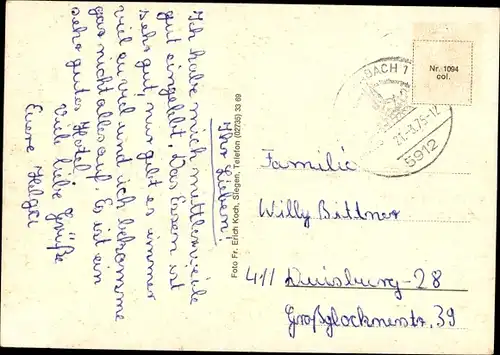 Ihr Lieben!
Ich habe mich mittlerweile
gut eingelebt. Das Essen ist
sehr gut, nur gibt es immer
viel zu viel und ich bekomme
gas nicht alles auf. Es ist ein
sehr gutes Hotel.
Viele liebe Grüße
Euere Helga
Foto Fr. Erich Koch, Siegen, Telefon (02735) 33 69
BACH 1
21-8.75-12
5912
Nr. 1094
col.
Familie
Willy Bittner
411 Duisburg-28
Großglocknerstr. 39